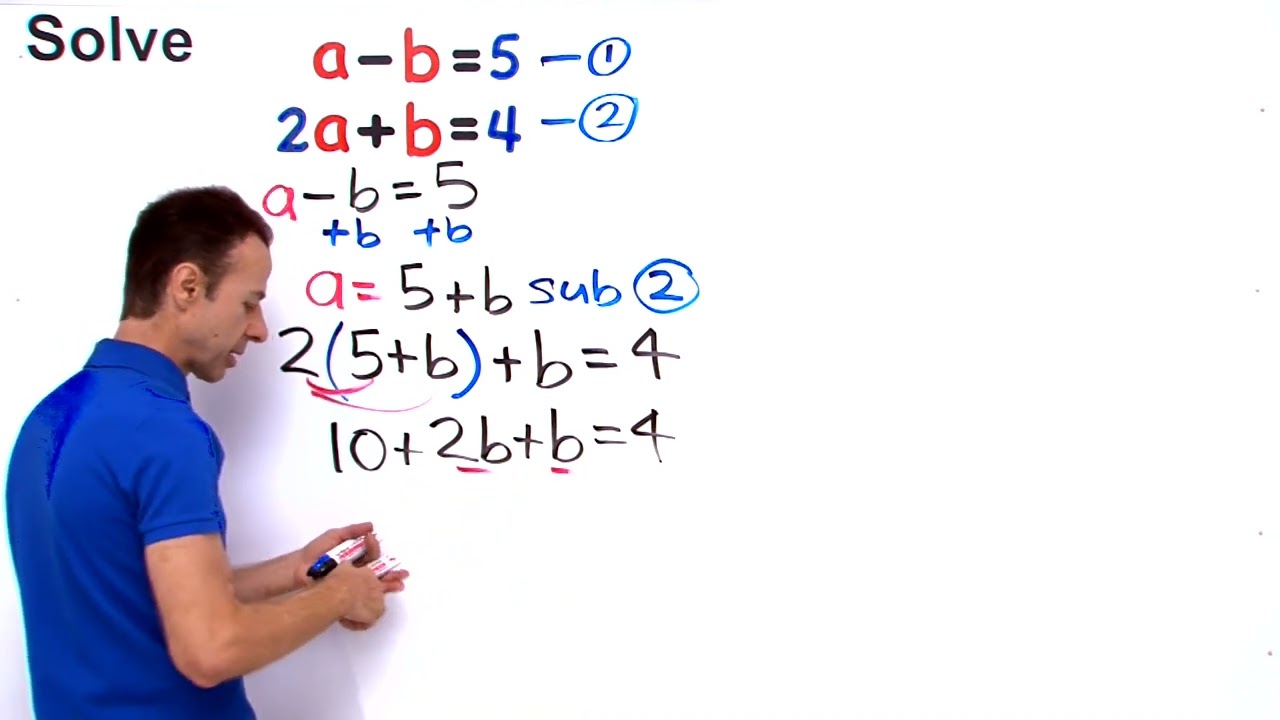 Solve
a-b=5 -①
2a+b=4 -②
a-b=5
+b +b
a=5+b sub ②
2(5+b)+b=4
10+2b+b=4